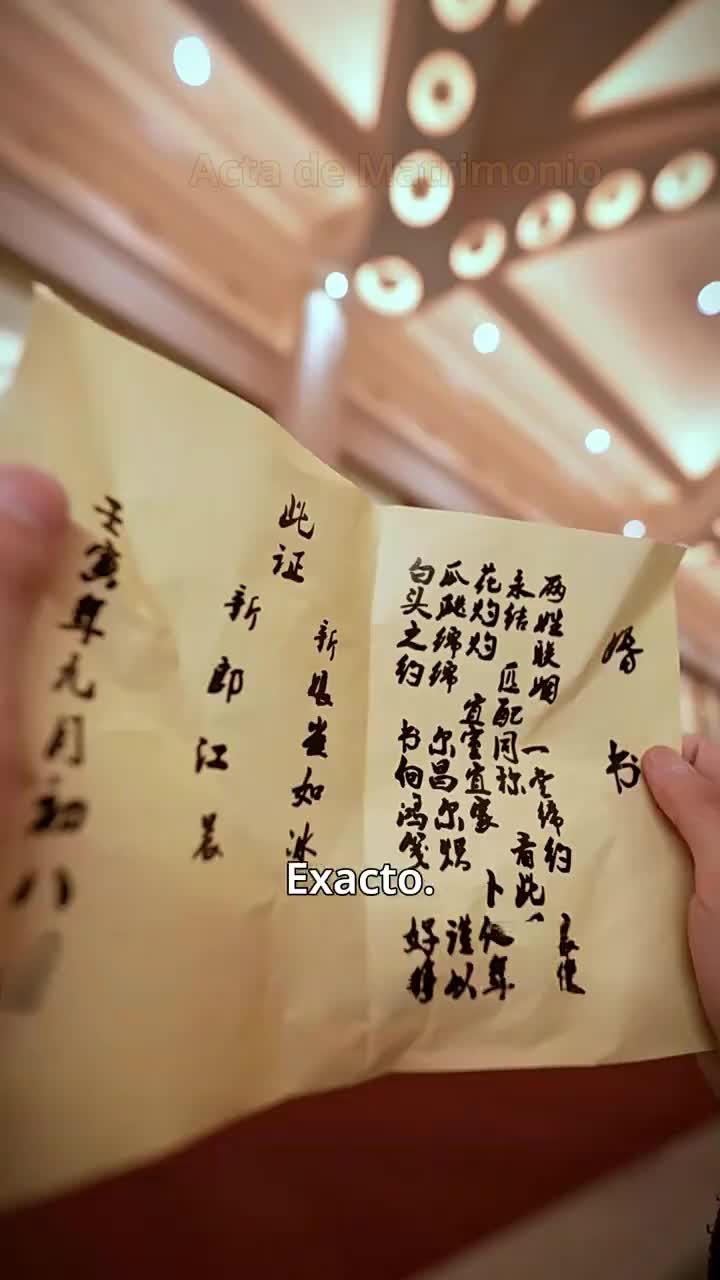 Acta de Matrimonio
婚书
两姓联姻 一堂缔约 良缘
永结 匹配同称 看此
花灼灼 宜室宜家 卜他年
瓜瓞绵绵 尔昌尔炽 谨以
白头之约 书向鸿笺 好将
此证
新娘 如冰
新郎 江
壬寅年元月初八
Exacto.